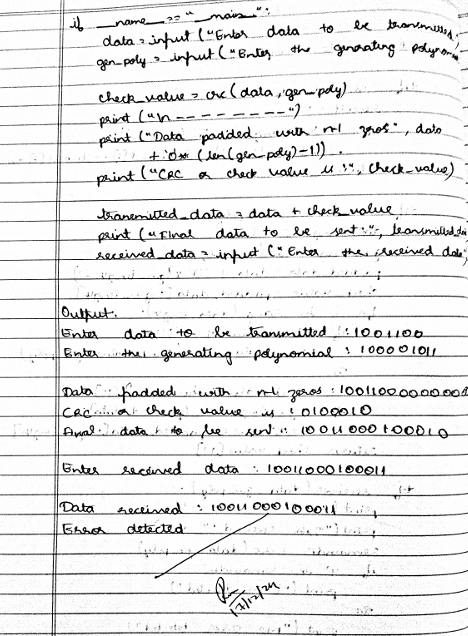 if __name__ == "__main__":
data = input ("Enter data to be transmitted:
gen_poly = input ("Enter the generating polynomia
check_value = crc (data, gen_poly)
print ("\n ---------")
print ("Data padded with n-1 zeros", data
+ '0'* (len(gen_poly)-1))
print ("CRC or check value is :", check_value)
transmitted_data = data + check_value
print ("Final data to be sent :", transmitted_da
received_data = input ("Enter the received data
Output:
Enter data to be transmitted : 1001100
Enter the generating polynomial : 100001011
Data padded with n-1 zeros : 1001100000000
CRC or check value is : 0100010
Final data to be sent : 10011000100010
Enter received data : 10011000100011
Data received : 10011000100011
Error detected
17/12/24